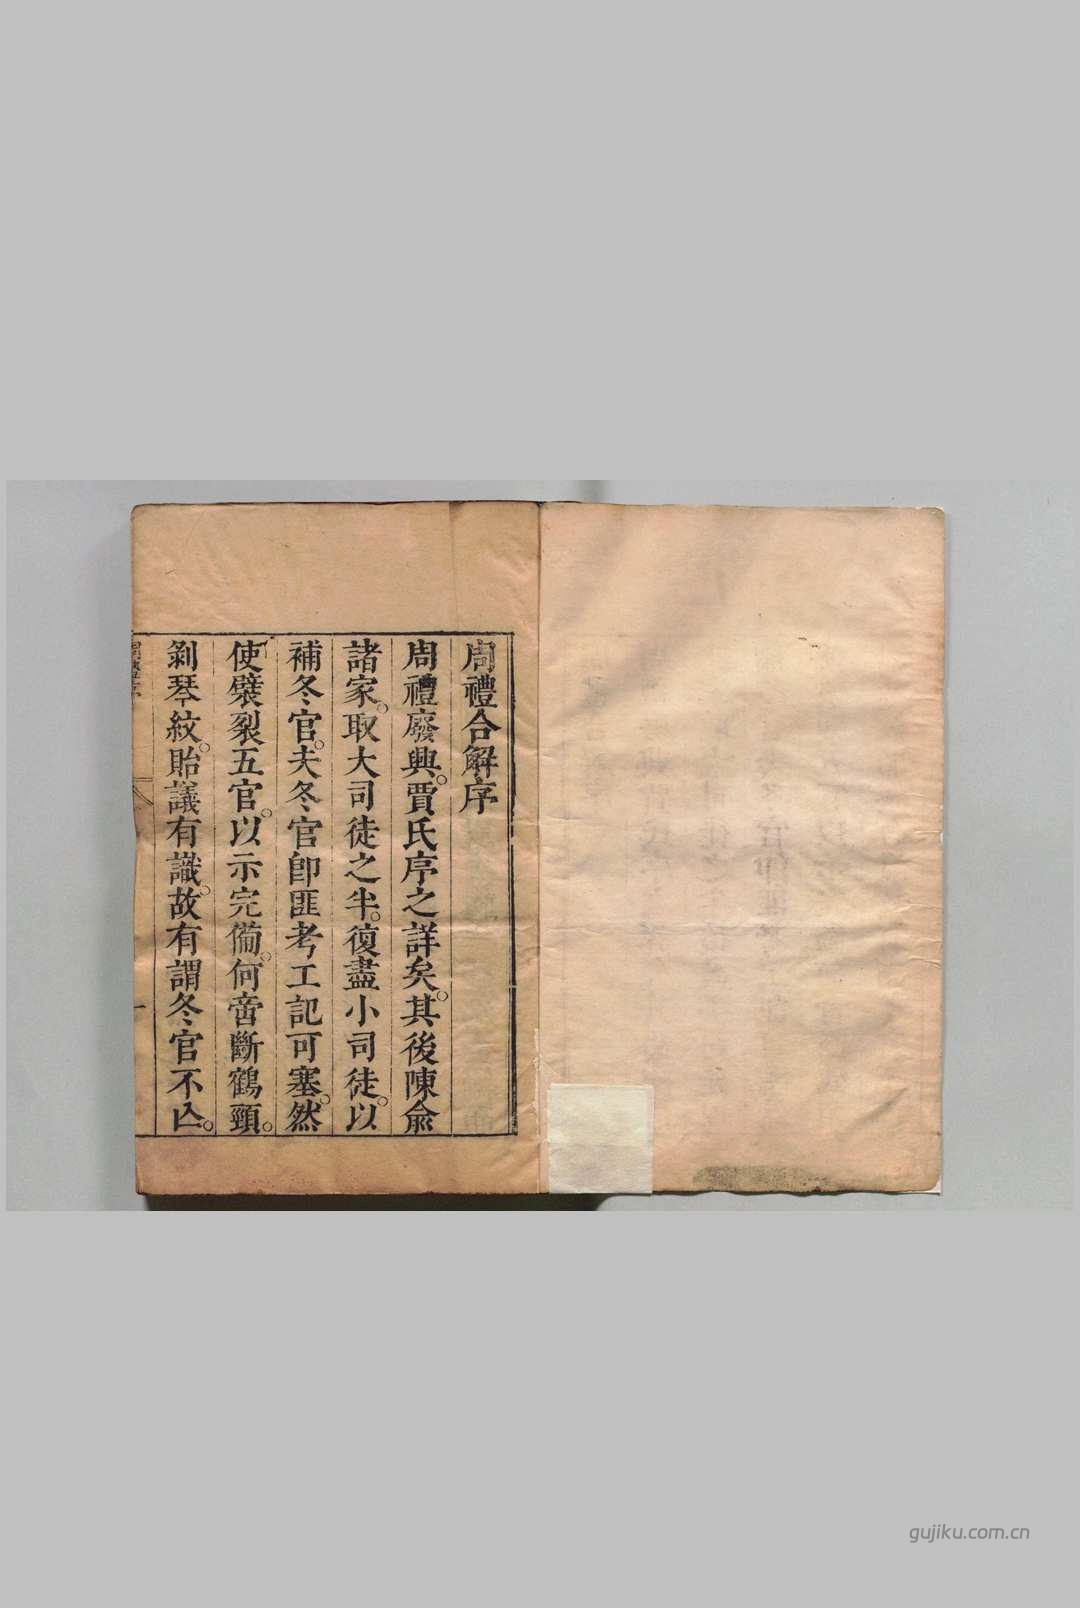 周禮合解序
周禮廢興。賈氏序之詳矣。其後陳俞
諸家。取大司徒之半。復盡小司徒。以
補冬官。夫冬官卽匪考工記可塞。然
使襞裂五官。以示完備。何啻斷鶴頸。
剝琴紋。貽議有識。故有謂冬官不亾。
一
gujiku.com.cn